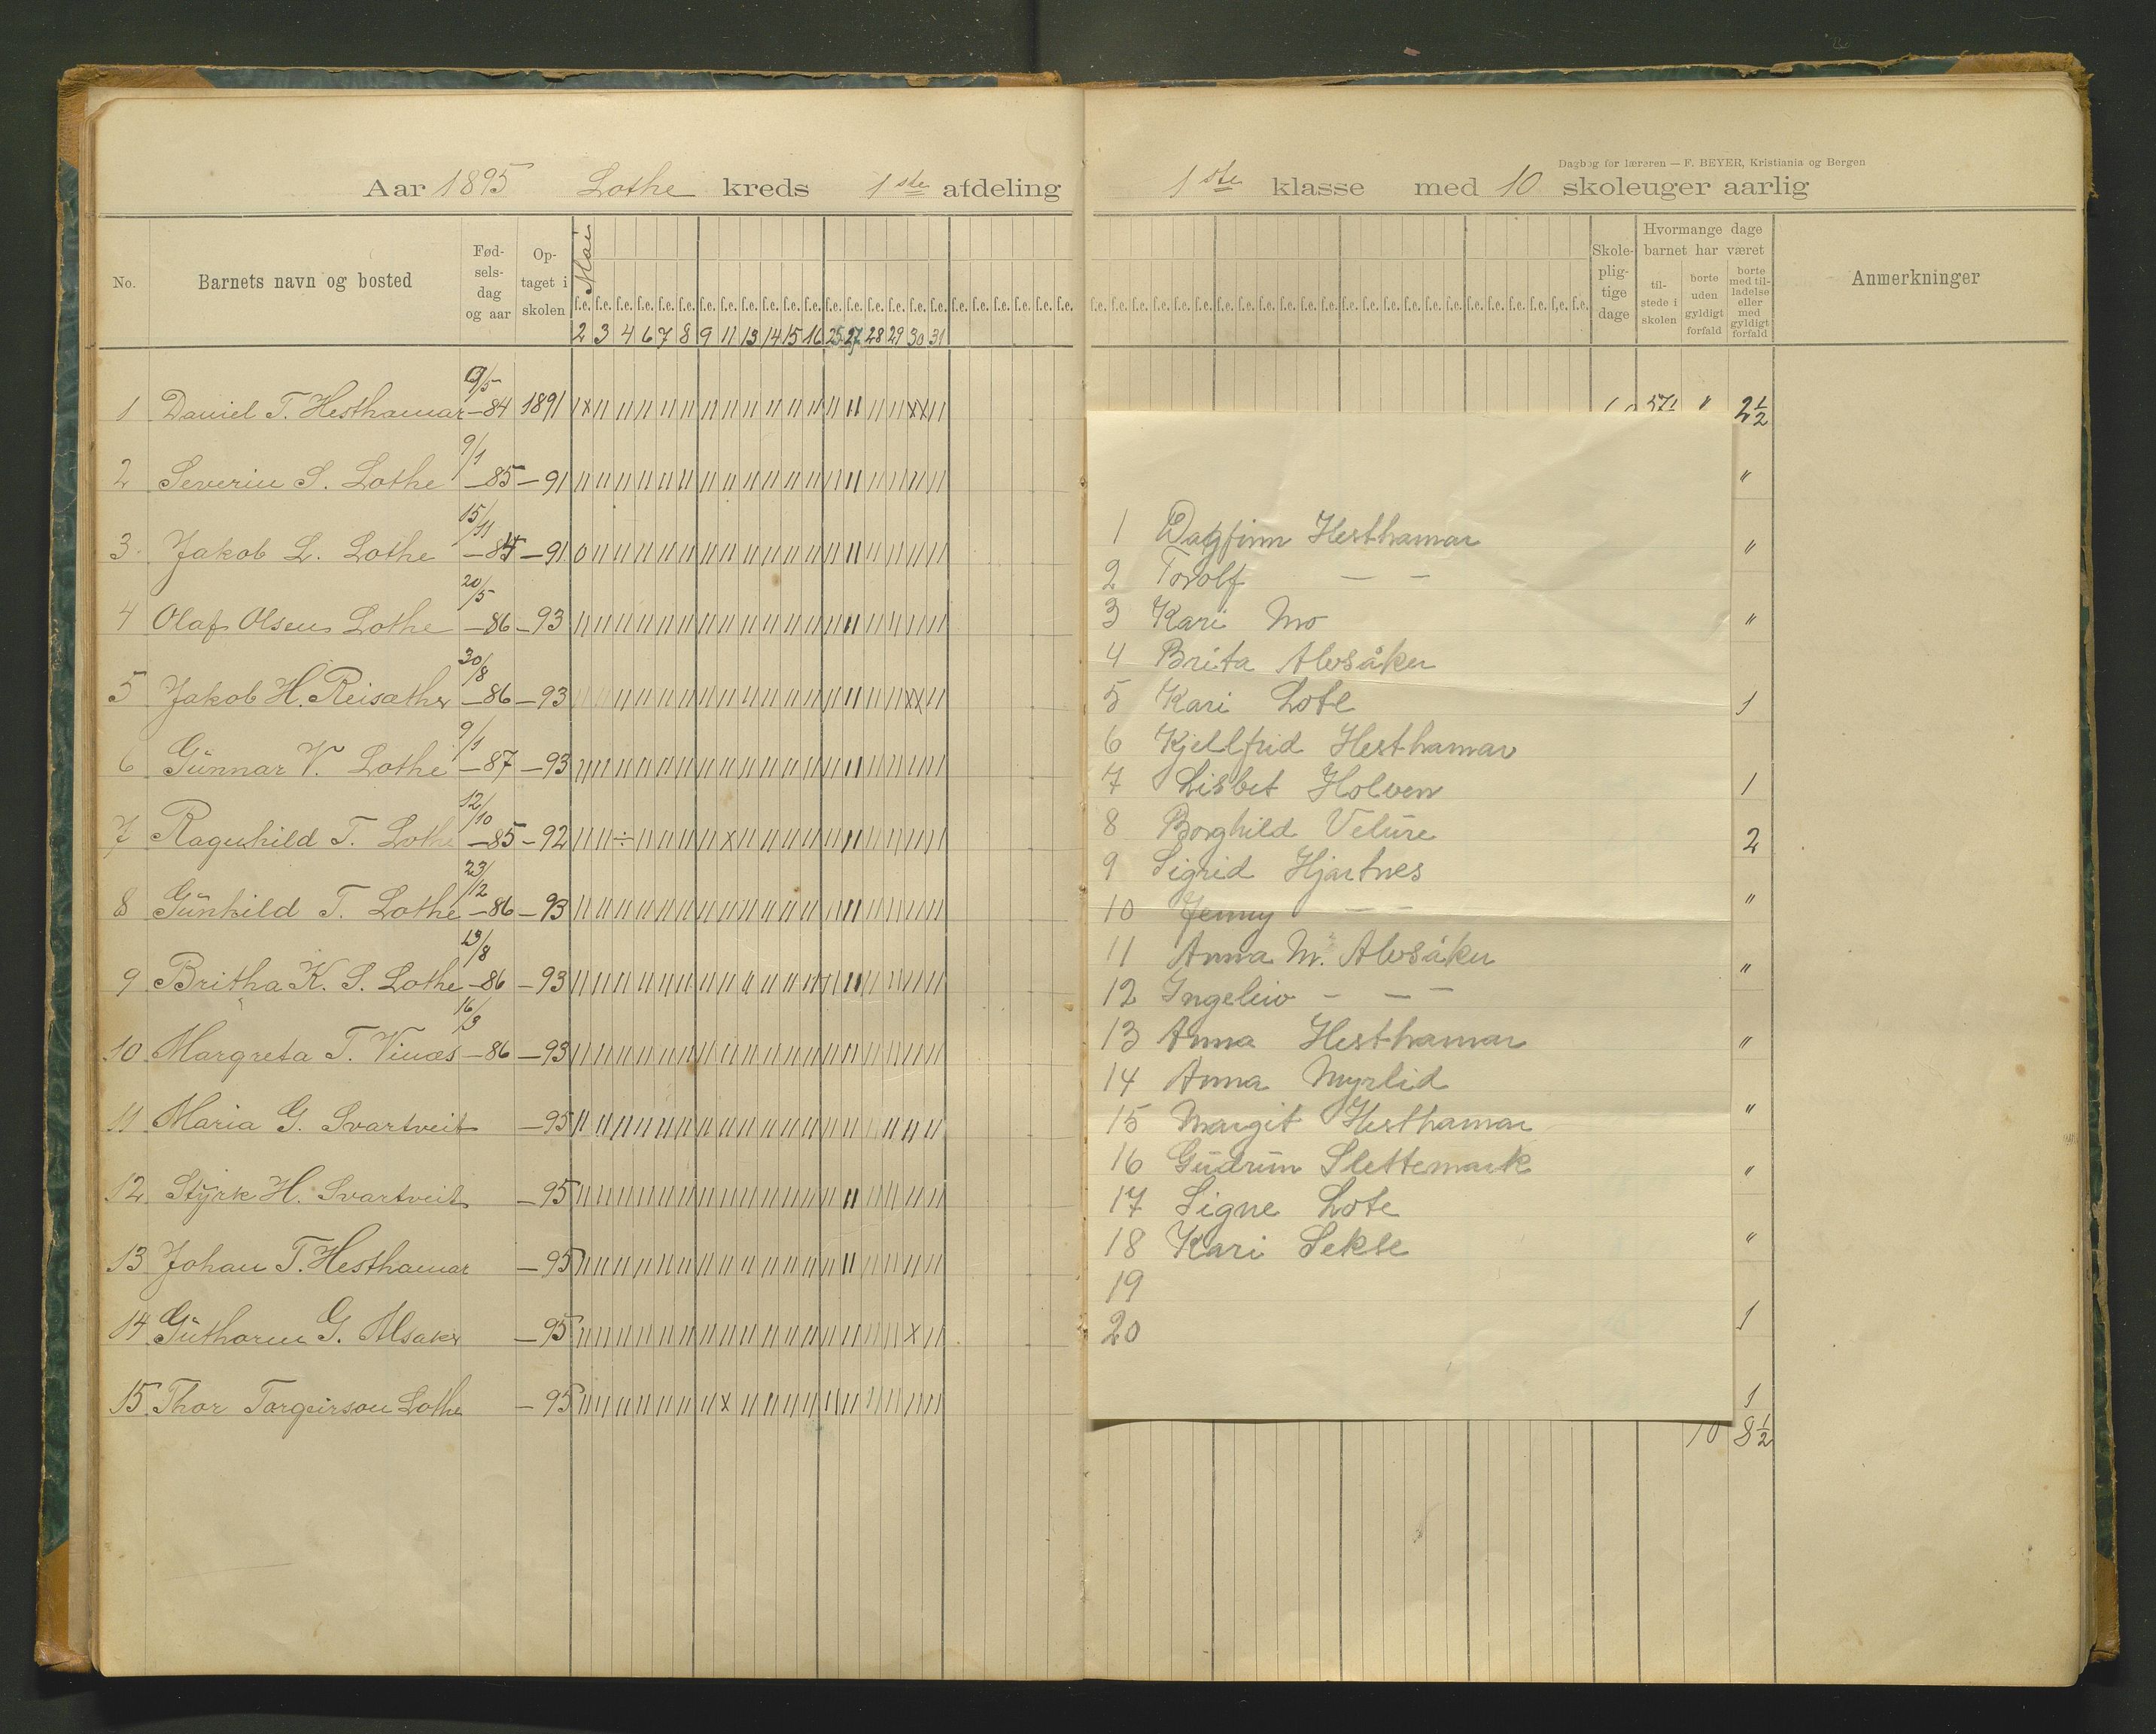 Dagbog for læreren — F. BEYER, Kristiania og Bergen
Aar 1895 Lothe kreds 1ste afdeling
1ste klasse med 10 skoleuger aarlig
No.
Barnets navn og bosted
Fød-
sels-
dag
og aar
Op-
taget i
skolen
Mai
f.e. f.e. f.e. f.e. f.e. f.e. f.e. f.e. f.e. f.e. f.e. f.e. f.e. f.e. f.e. f.e. f.e. f.e. f.e. f.e. f.e. f.e. f.e. f.e.
2 3 4 6 7 8 9 11 13 14 15 16 25 27 28 29 30 31
Skole-
plig-
tige
dage
Hvormange dage
barnet har været
til-
stede i
skolen
borte
uden
gyldigt
forfald
borte
med til-
ladelse
eller
med
gyldigt
forfald
Anmerkninger
1 Daniel T. Hesthamar 9/5 –84 1891 " 2½
2 Severin S. Lothe 9/1 –85 –91 "
3 Jakob L. Lothe 15/11 –84 –91 "
4 Olaf Olsen Lothe 20/5 –86 –93 "
5 Jakob H. Reisæther 30/8 –86 –93 1
6 Gunnar V. Lothe 9/1 –87 –93 1
7 Ragnhild T. Lothe 12/10 –85 –92 2
8 Gunhild T. Lothe 23/12 –86 –93 "
9 Britha K. S. Lothe 23/8 –86 –93 "
10 Margreta T. Vinæs 16/3 –86 –93 "
11 Maria G. Svartveit –95 "
12 Styrk H. Svartveit –95 "
13 Johan T. Hesthamar –95 "
14 Guthorm G. Alsaker –95 1
15 Thor Torgeirson Lothe –95 1
10 8½
1 Dagfinn Hesthamar
2 Torolf — —
3 Kari Mo
4 Brita Alvsåker
5 Kari Lote
6 Kjellfrid Hesthamar
7 Lisbet Holven
8 Borghild Velure
9 Sigrid Hjartnes
10 Jenny — —
11 Anna M. Alvsåker
12 Ingeleiv – — —
13 Anna Hesthamar
14 Anna Myrlid
15 Margit Hesthamar
16 Gudrun Slettemark
17 Signe Lote
18 Kari Sekse
19
20